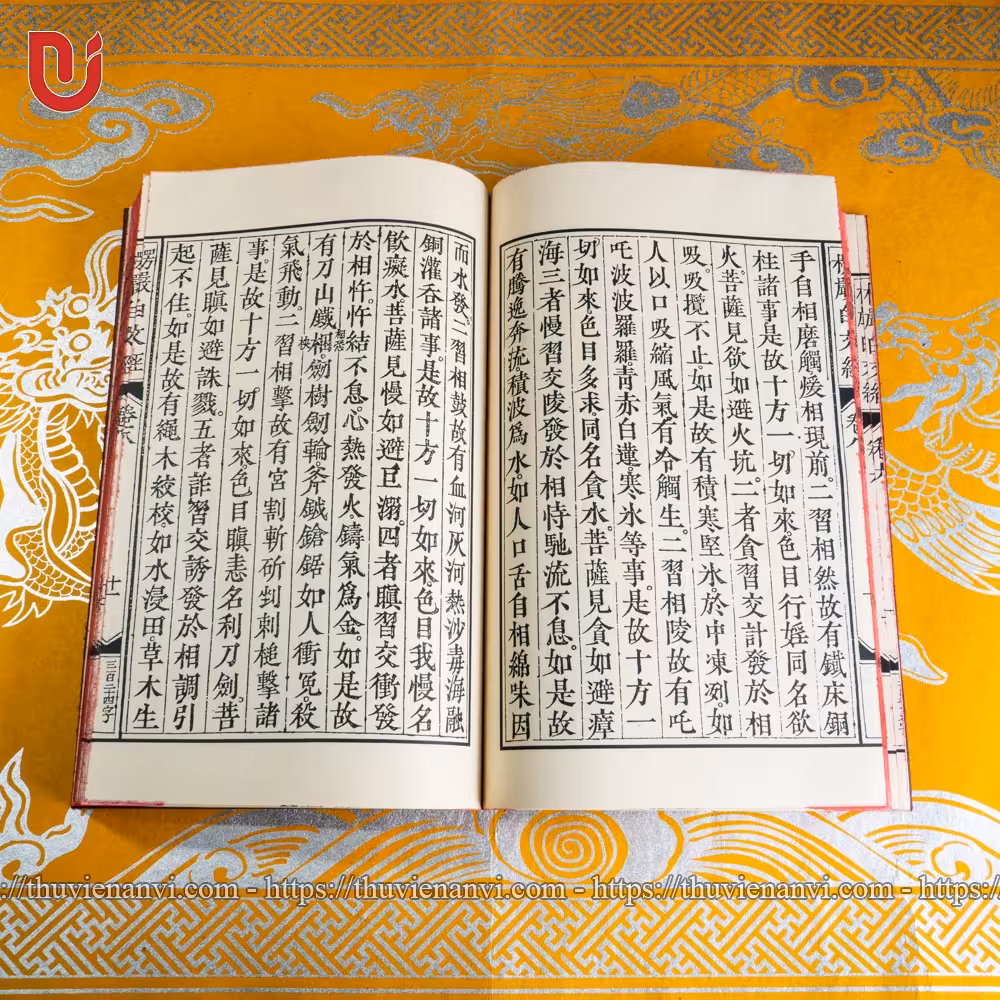 手自相磨觸煖相現前。二習相然故有鐵床銅
柱諸事是故十方一切如來。色目行婬同名欲
火。菩薩見欲如避火坑。二者貪習交計發於相
吸。吸攬不止。如是故有積寒堅氷。於中凍冽。如
人以口吸縮風氣有冷觸生。二習相陵故有吒
吒波波羅羅青赤白蓮。寒氷等事。是故十方一
切如來。色目多求。同名貪水。菩薩見貪如避瘴
海三者慢習交陵發於相恃馳流不息。如是故
有騰逸奔流積波爲水。如人口舌自相綿味因
而水發。二習相鼓故有血河灰河熱沙毒海融
銅灌吞諸事。是故十方一切如來。色目我慢名
飲癡水。菩薩見慢如避巨溺。四者瞋習交衝發
於相忤。忤結不息。心熱發火鑄氣爲金。如是故
有刀山鐵梱。劍樹劍輪。斧鉞鎗鋸如人衝冤。殺
氣飛動。二習相擊故有宮割斬斫剉刺槌擊諸
事。是故十方一切如來。色目瞋恚名利刀劍。菩
薩見瞋如避誅戮。五者詐習交誘發於相調引
起不住。如是故有繩木絞校。如水浸田。草木生
楞嚴白文經
卷八
十一
三百二四字
https://thuvienanvi.com - https://thuvienanvi.com - https://thuvienanvi.com